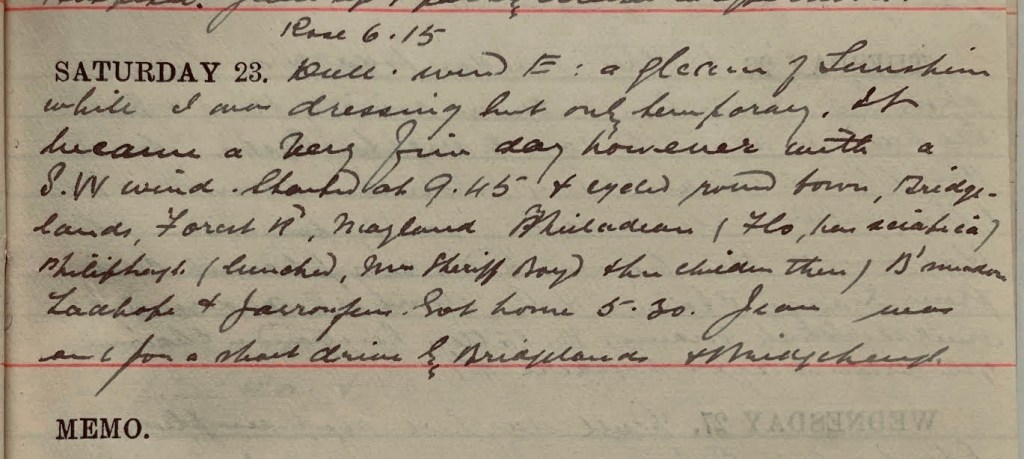 Rose 6.15
SATURDAY 23. Dull. wind E: a gleam of Sunshine
while I was dressing but only temporary. It
became a very fine day however with a
S.W wind. Started at 9.45 & cycled round town, Bridge-
lands, Forest Rd, Mayland Philadean (Flo, has sciatica)
Philiphaugh (lunched, Mrs Sheriff Boyd & her children there) B'meadow
Ladhope & . Got home 5.30. Jean was
out for a short drive by Bridgelands & Bridgehaugh.
MEMO.
WEDNESDAY 27.